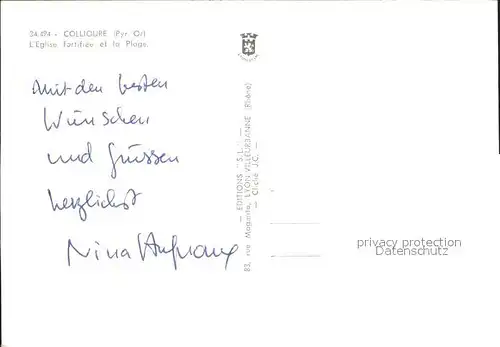 34.494 - COLLIOURE (Pyr. Or)
L'Eglise fortifiée et la Plage.
Mit den besten
Wünschen
und Grüssen
herzlichst
Nina
EDITIONS "S.L."
83, rue Magenta, LYON-VILLEURBANNE (Rhône)
Cliché J.C.
privacy protection
Datenschutz